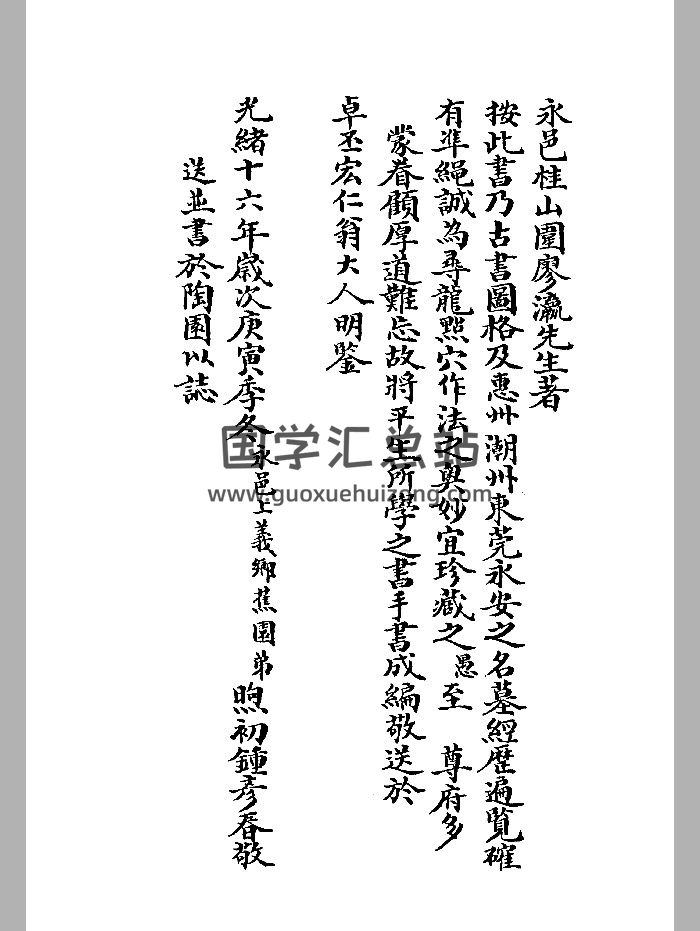 永邑桂山圍廖瀛先生著
按此書乃古書圖格及惠州潮州東莞永安之名墓經歷遍覽確
有準繩誠為尋龍點穴作法之奥妙宜珍藏之愚至 尊府多
蒙眷顧厚道難忘故將平生所學之書手書成編敬送於
卓丕宏仁翁大人明鑒
光緒十六年歲次庚寅季冬永邑上義鄉蕉園弟煦初鍾彥春敬
送並書於陶園以誌
国学汇总站
www.guoxuehuizong.com